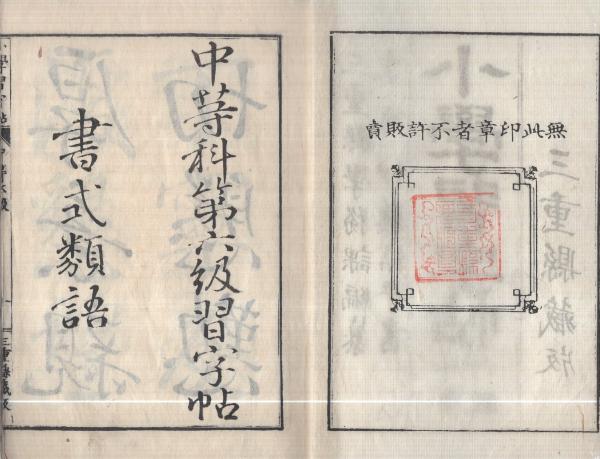 無此印章者不許販賣
中等科第六級習字帖
書式類語
三重縣藏版